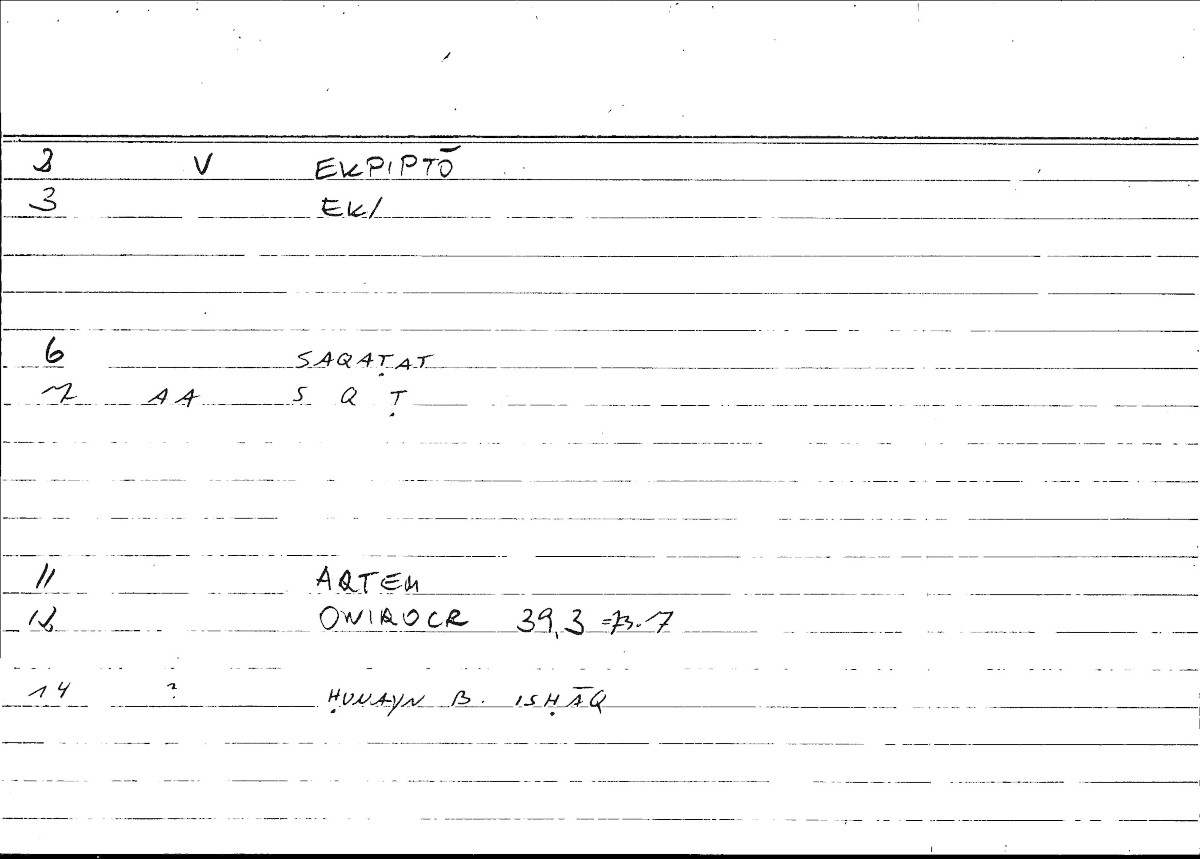 2 V EKPIPTŌ
3 EK/
6 SAQAṬAT
7 AA S Q Ṭ
11 ARTEM
12 ONIROCR 39,3 = 73.7
14 ? ḤUNAYN B. ISḤĀQ